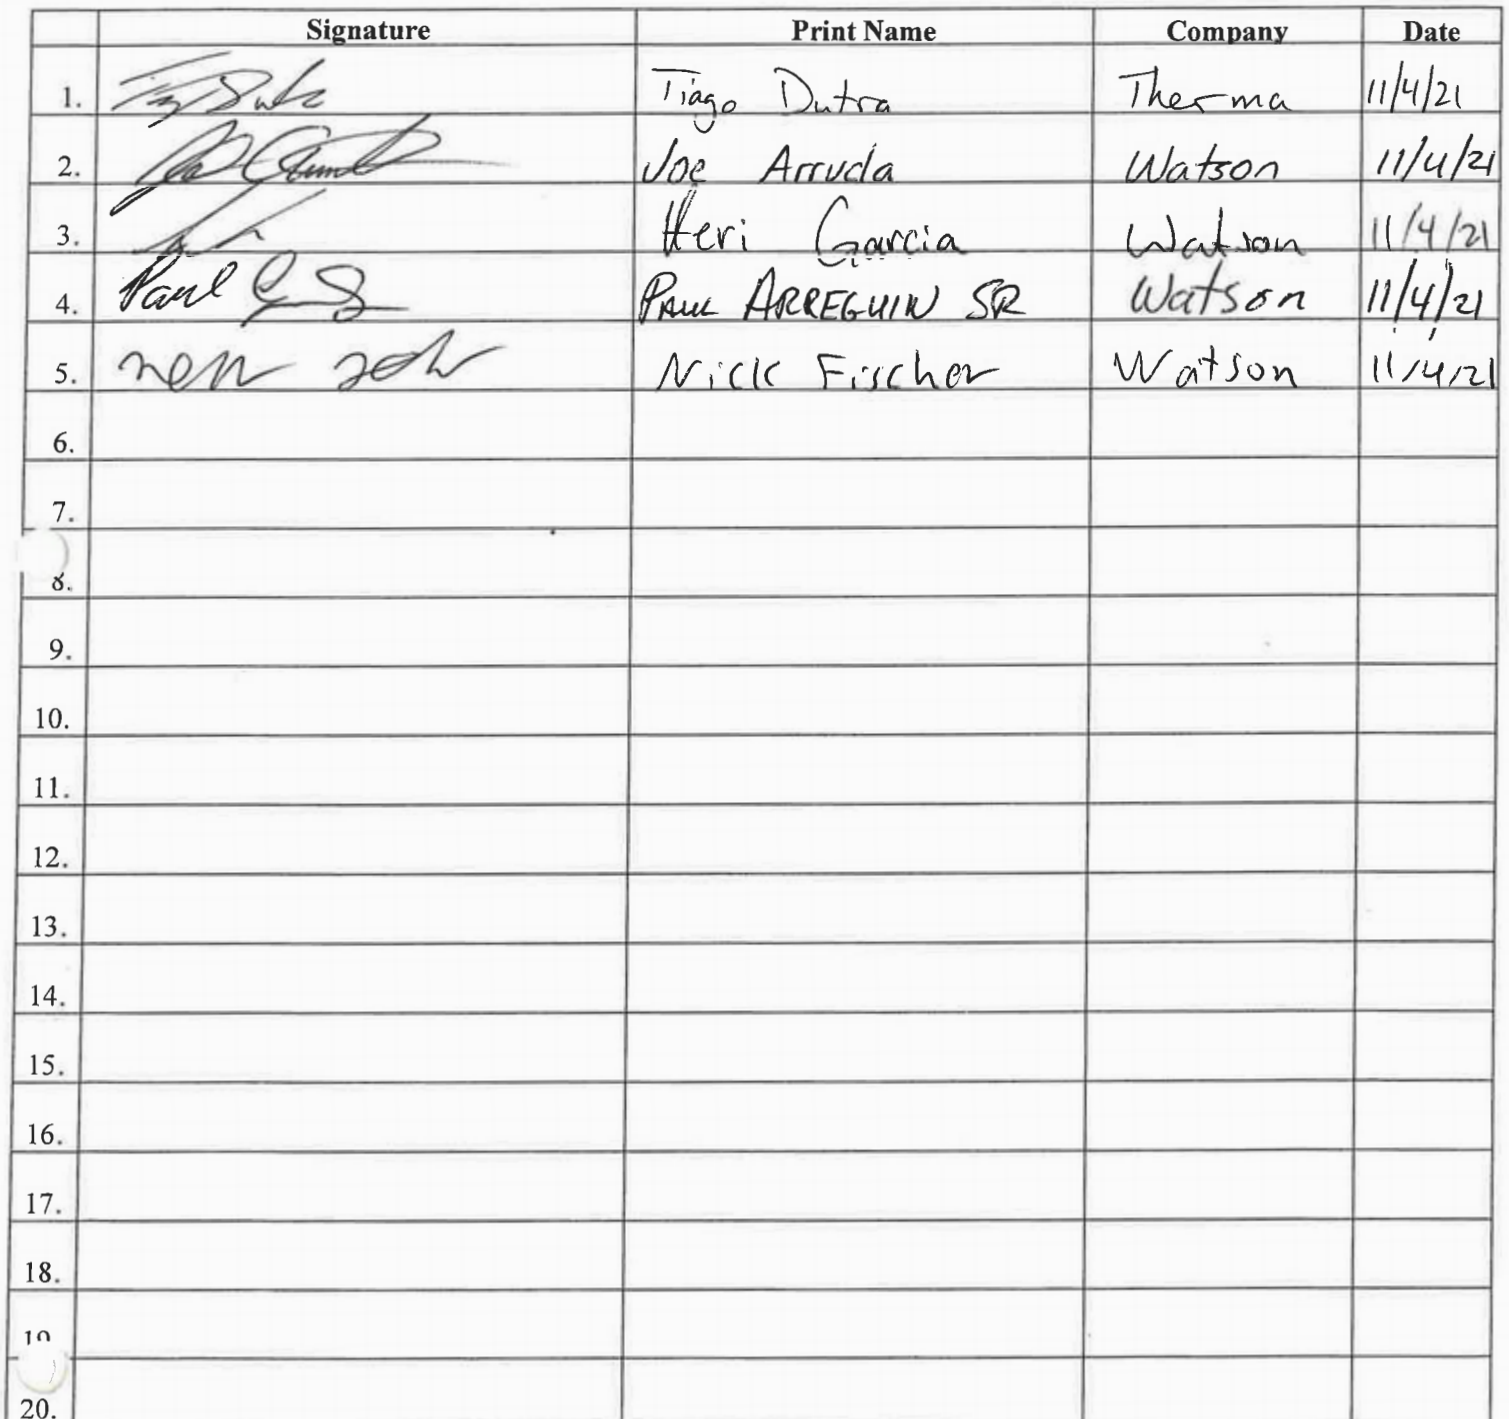 Signature Print Name Company Date
1. Tiago Dutra Therma 11/4/21
2. Joe Arruda Watson 11/4/21
3. Heri Garcia Watson 11/4/21
4. Paul PAUL ARREGUIN SR Watson 11/4/21
5. Nick Fischer Watson 11/4/21
6.
7.
8.
9.
10.
11.
12.
13.
14.
15.
16.
17.
18.
19
20.